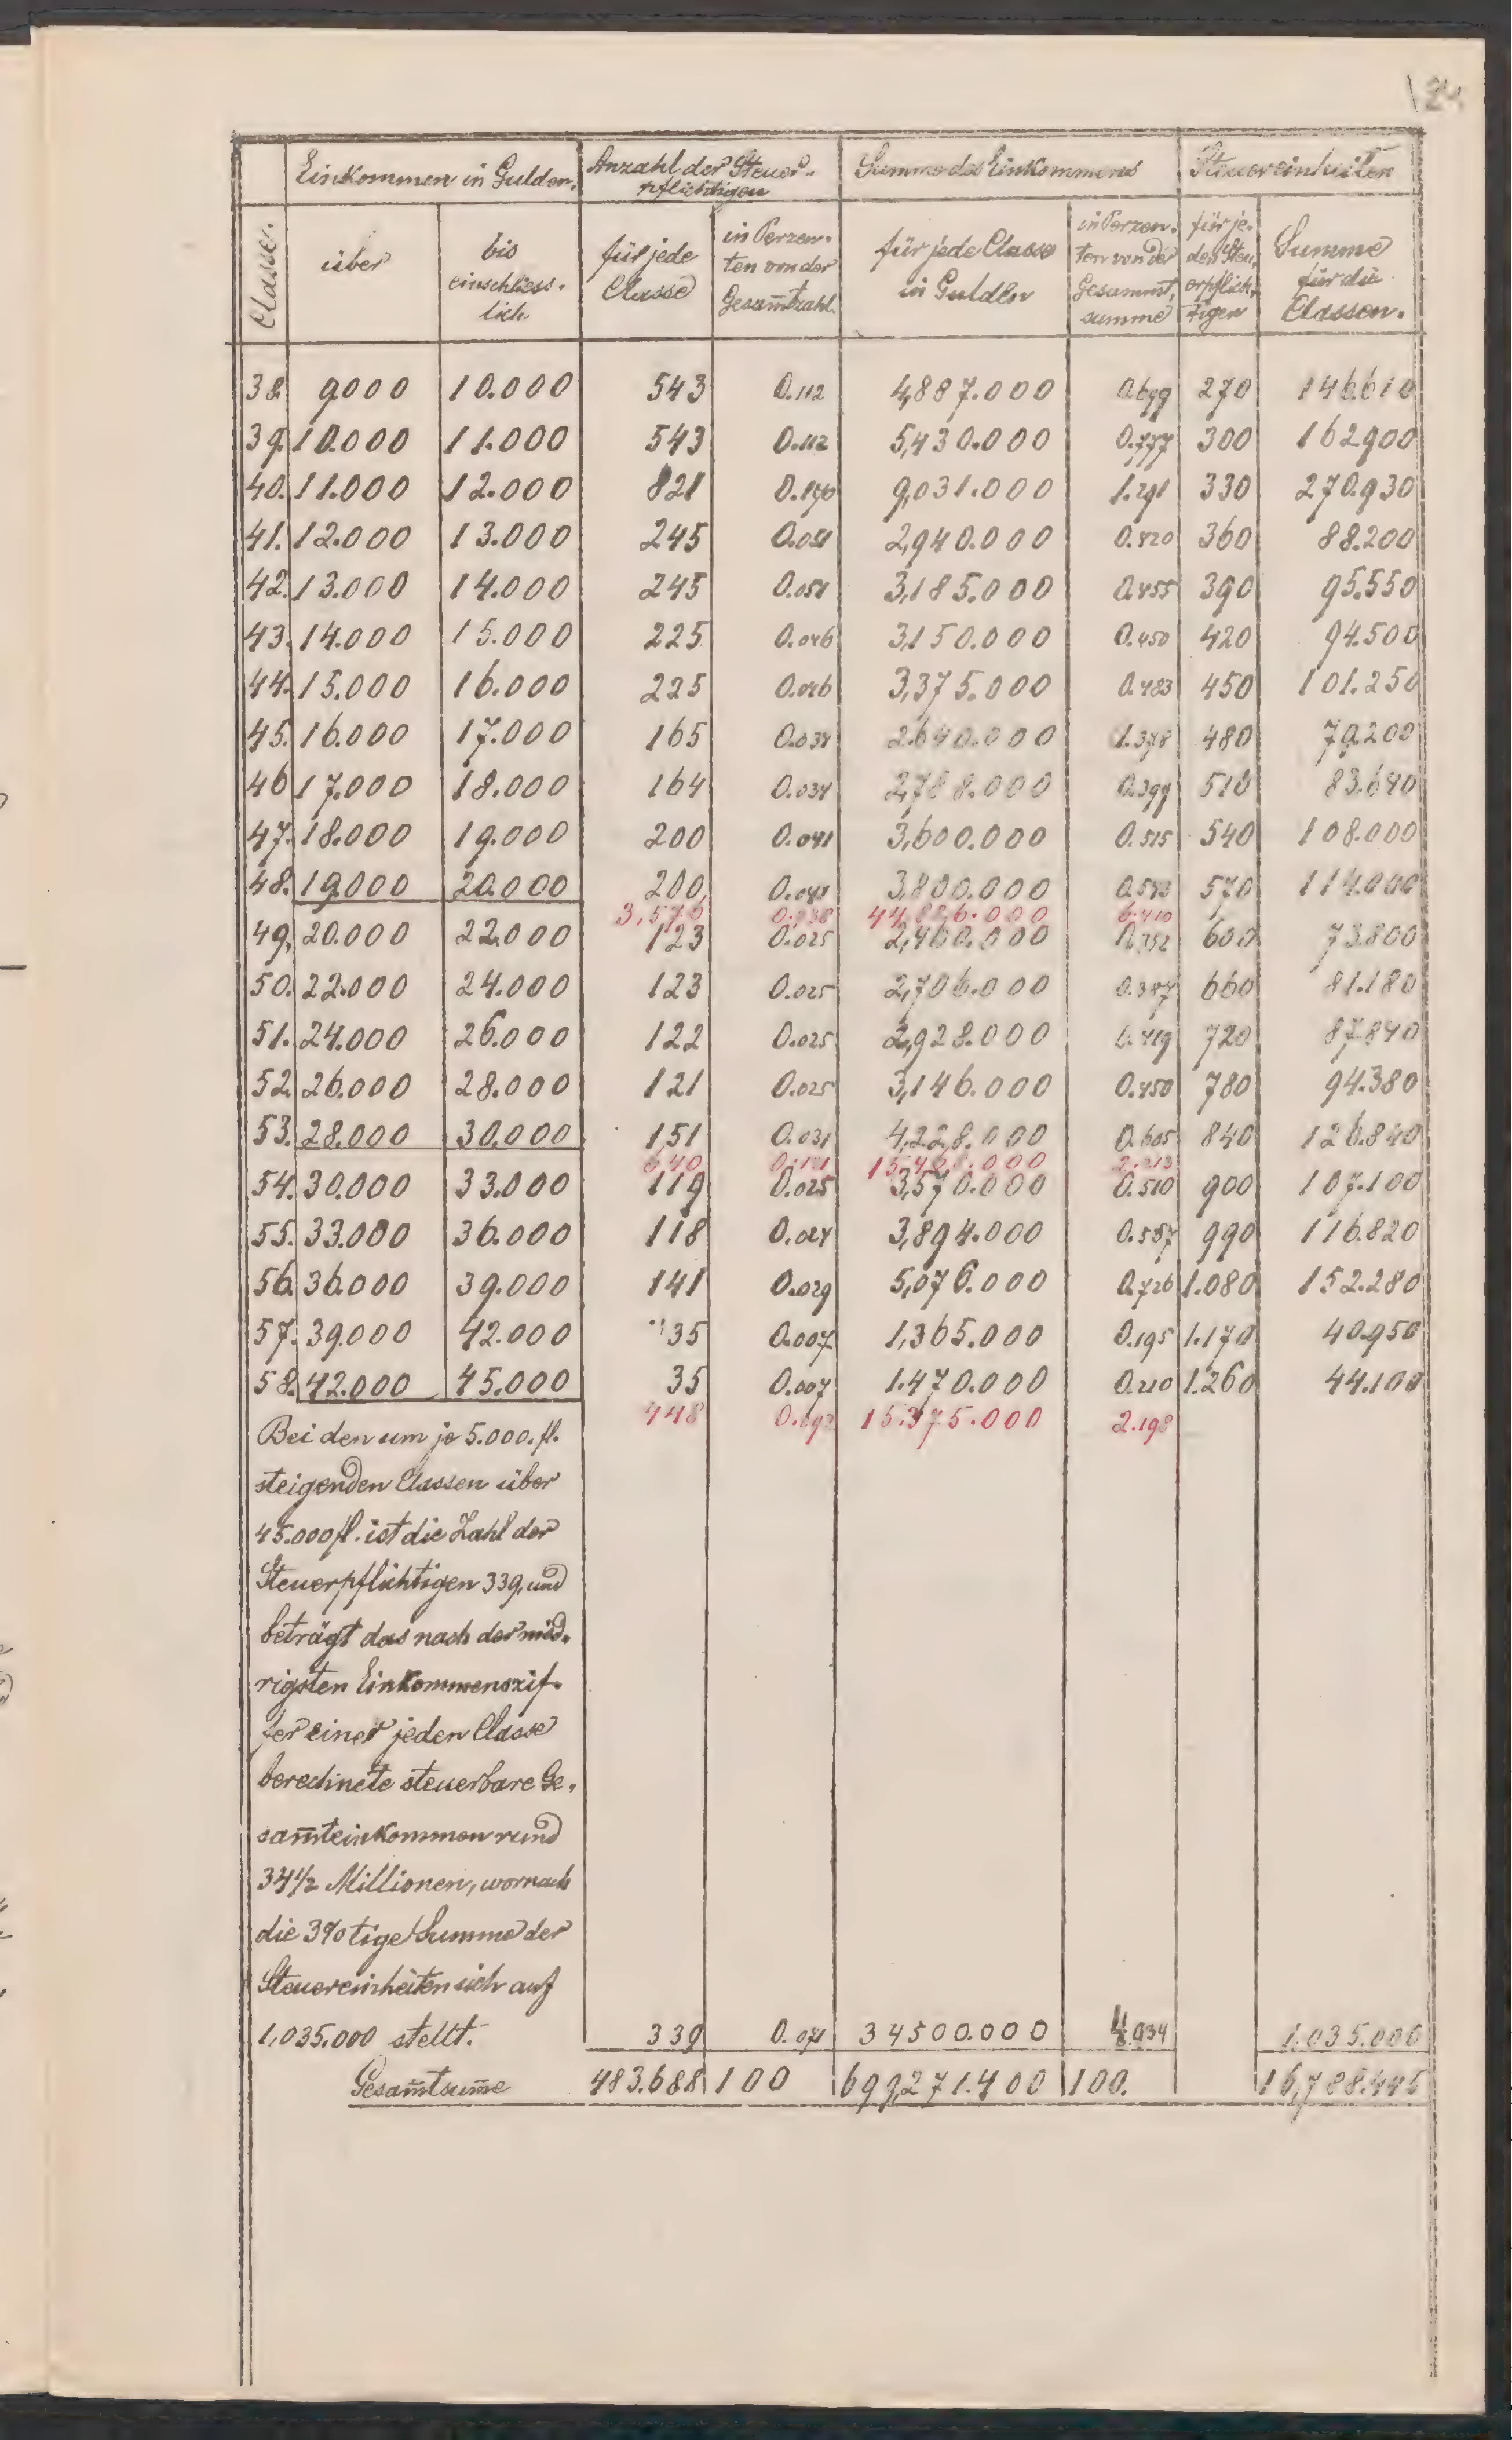 24
Einkommen in Gulden. Anzahl der Steuer- Summe des Einkommens Steuereinheiten
pflichtigen
Classe. über bis einschliess-lich für jede Classe in Perzen-ten von der Gesam̅tzahl. für jede Classe in Gulden in Perzen-ten von der Gesammt-summe für je-den Steu-erpflich-tigen Summe für die Classen.
38. 9000 10.000 543 0.112 4,887.000 0.699 270 146.610
39. 10.000 11.000 543 0.112 5,430.000 0.777 300 162.900
40. 11.000 12.000 821 0.170 9,031.000 1.291 330 270.930
41. 12.000 13.000 245 0.051 2,940.000 0.420 360 88.200
42. 13.000 14.000 245 0.051 3,185.000 0.455 390 95.550
43. 14.000 15.000 225 0.046 3,150.000 0.450 420 94.500
44. 15.000 16.000 225 0.046 3,375.000 0.483 450 101.250
45. 16.000 17.000 165 0.034 2.640.000 1.378 480 79.200
46 17.000 18.000 164 0.034 2,788.000 0.399 510 83.640
47. 18.000 19.000 200 0.041 3,600.000 0.515 540 108.000
48. 19.000 20.000 200 0.041 3,800.000 0.543 570 114.000
3,576 0.738 44,826.000 6.410
49. 20.000 22.000 123 0.025 2,460.000 0.352 600 73.800
50. 22.000 24.000 123 0.025 2,706.000 0.387 660 81.180
51. 24.000 26.000 122 0.025 2,928.000 0.419 720 87.840
52. 26.000 28.000 121 0.025 3,146.000 0.450 780 94.380
53. 28.000 30.000 151 0.031 4,228.000 0.605 840 126.840
640 0.131 15,468.000 2.213
54. 30.000 33.000 119 0.025 3,570.000 0.510 900 107.100
55. 33.000 36.000 118 0.024 3,894.000 0.557 990 116.820
56. 36.000 39.000 141 0.029 5,076.000 0.726 1.080 152.280
57. 39.000 42.000 35 0.007 1,365.000 0.195 1.170 40.950
58. 42.000 45.000 35 0.007 1.470.000 0.210 1.260 44.100
448 0.092 15.375.000 2.198
Bei den um je 5.000. fl.
steigenden Classen über
45.000 fl. ist die Zahl der
Steuerpflichtigen 339, und
beträgt das nach der nied-
rigsten Einkommenszif-
fer einer jeden Classe
berechnete steuerbare Ge-
sam̅teinkommen rund
34½ Millionen, wornach
die 3%tige Summe der
Steuereinheiten sich auf
1,035.000 stellt. 339 0.071 34500.000 4.934 1.035.000
Gesam̅tsum̅e 483.688 100 699,271.400 100. 16,788.445